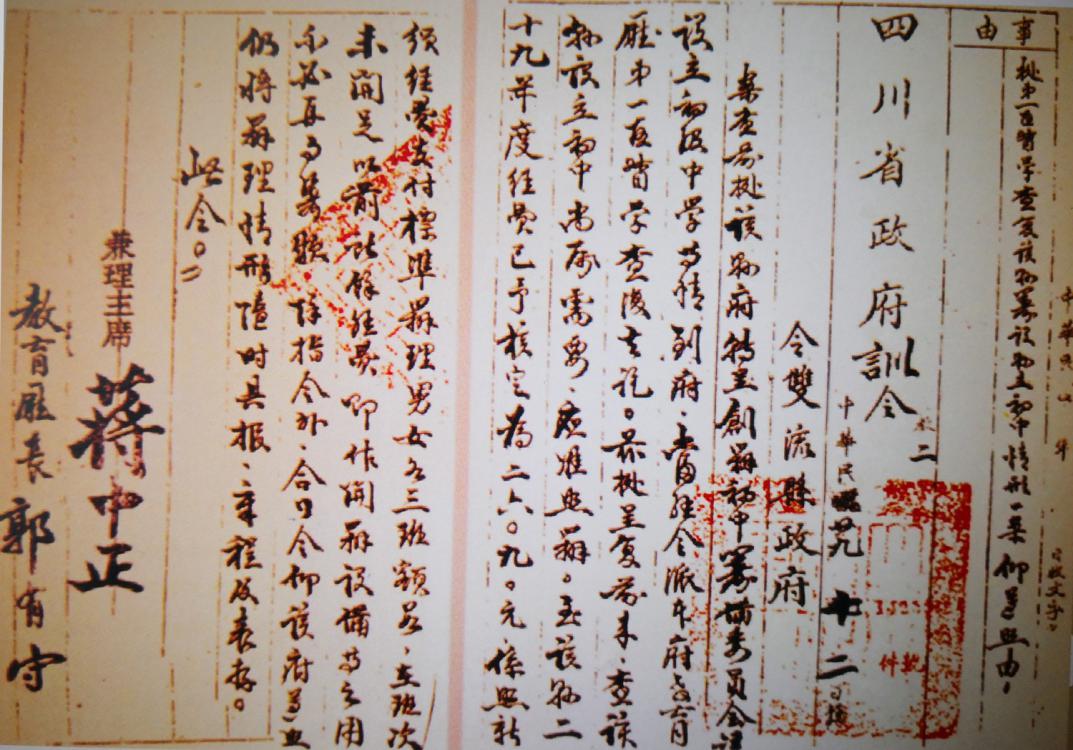 事由
据第一区督学查复该县筹设县立初中情形一案仰遵照由。
四川省政府訓令
令雙流縣政府
中華民國 廿九 十二
案查前據該縣府轉呈創辦初中籌備委員会請
設立初級中学等情到府、当經令派本府教育
廳第一区督学查復去訖。茲據呈复前来、查該
縣設立初中尚属需要、應准照辦。至該縣二
十九年度經費已予核定為二六〇九〇元係照新
頒經費支付標準辦理男女各三班額若、在班次
未開足以前所餘經費即作開辦設備等之用
不必再事籌縣、除指令外、合行令仰該府遵照
仍將辦理情形隨時具报、章程及表存。
此令。
兼理主席 蔣中正
教育廳長 郭有守
件號